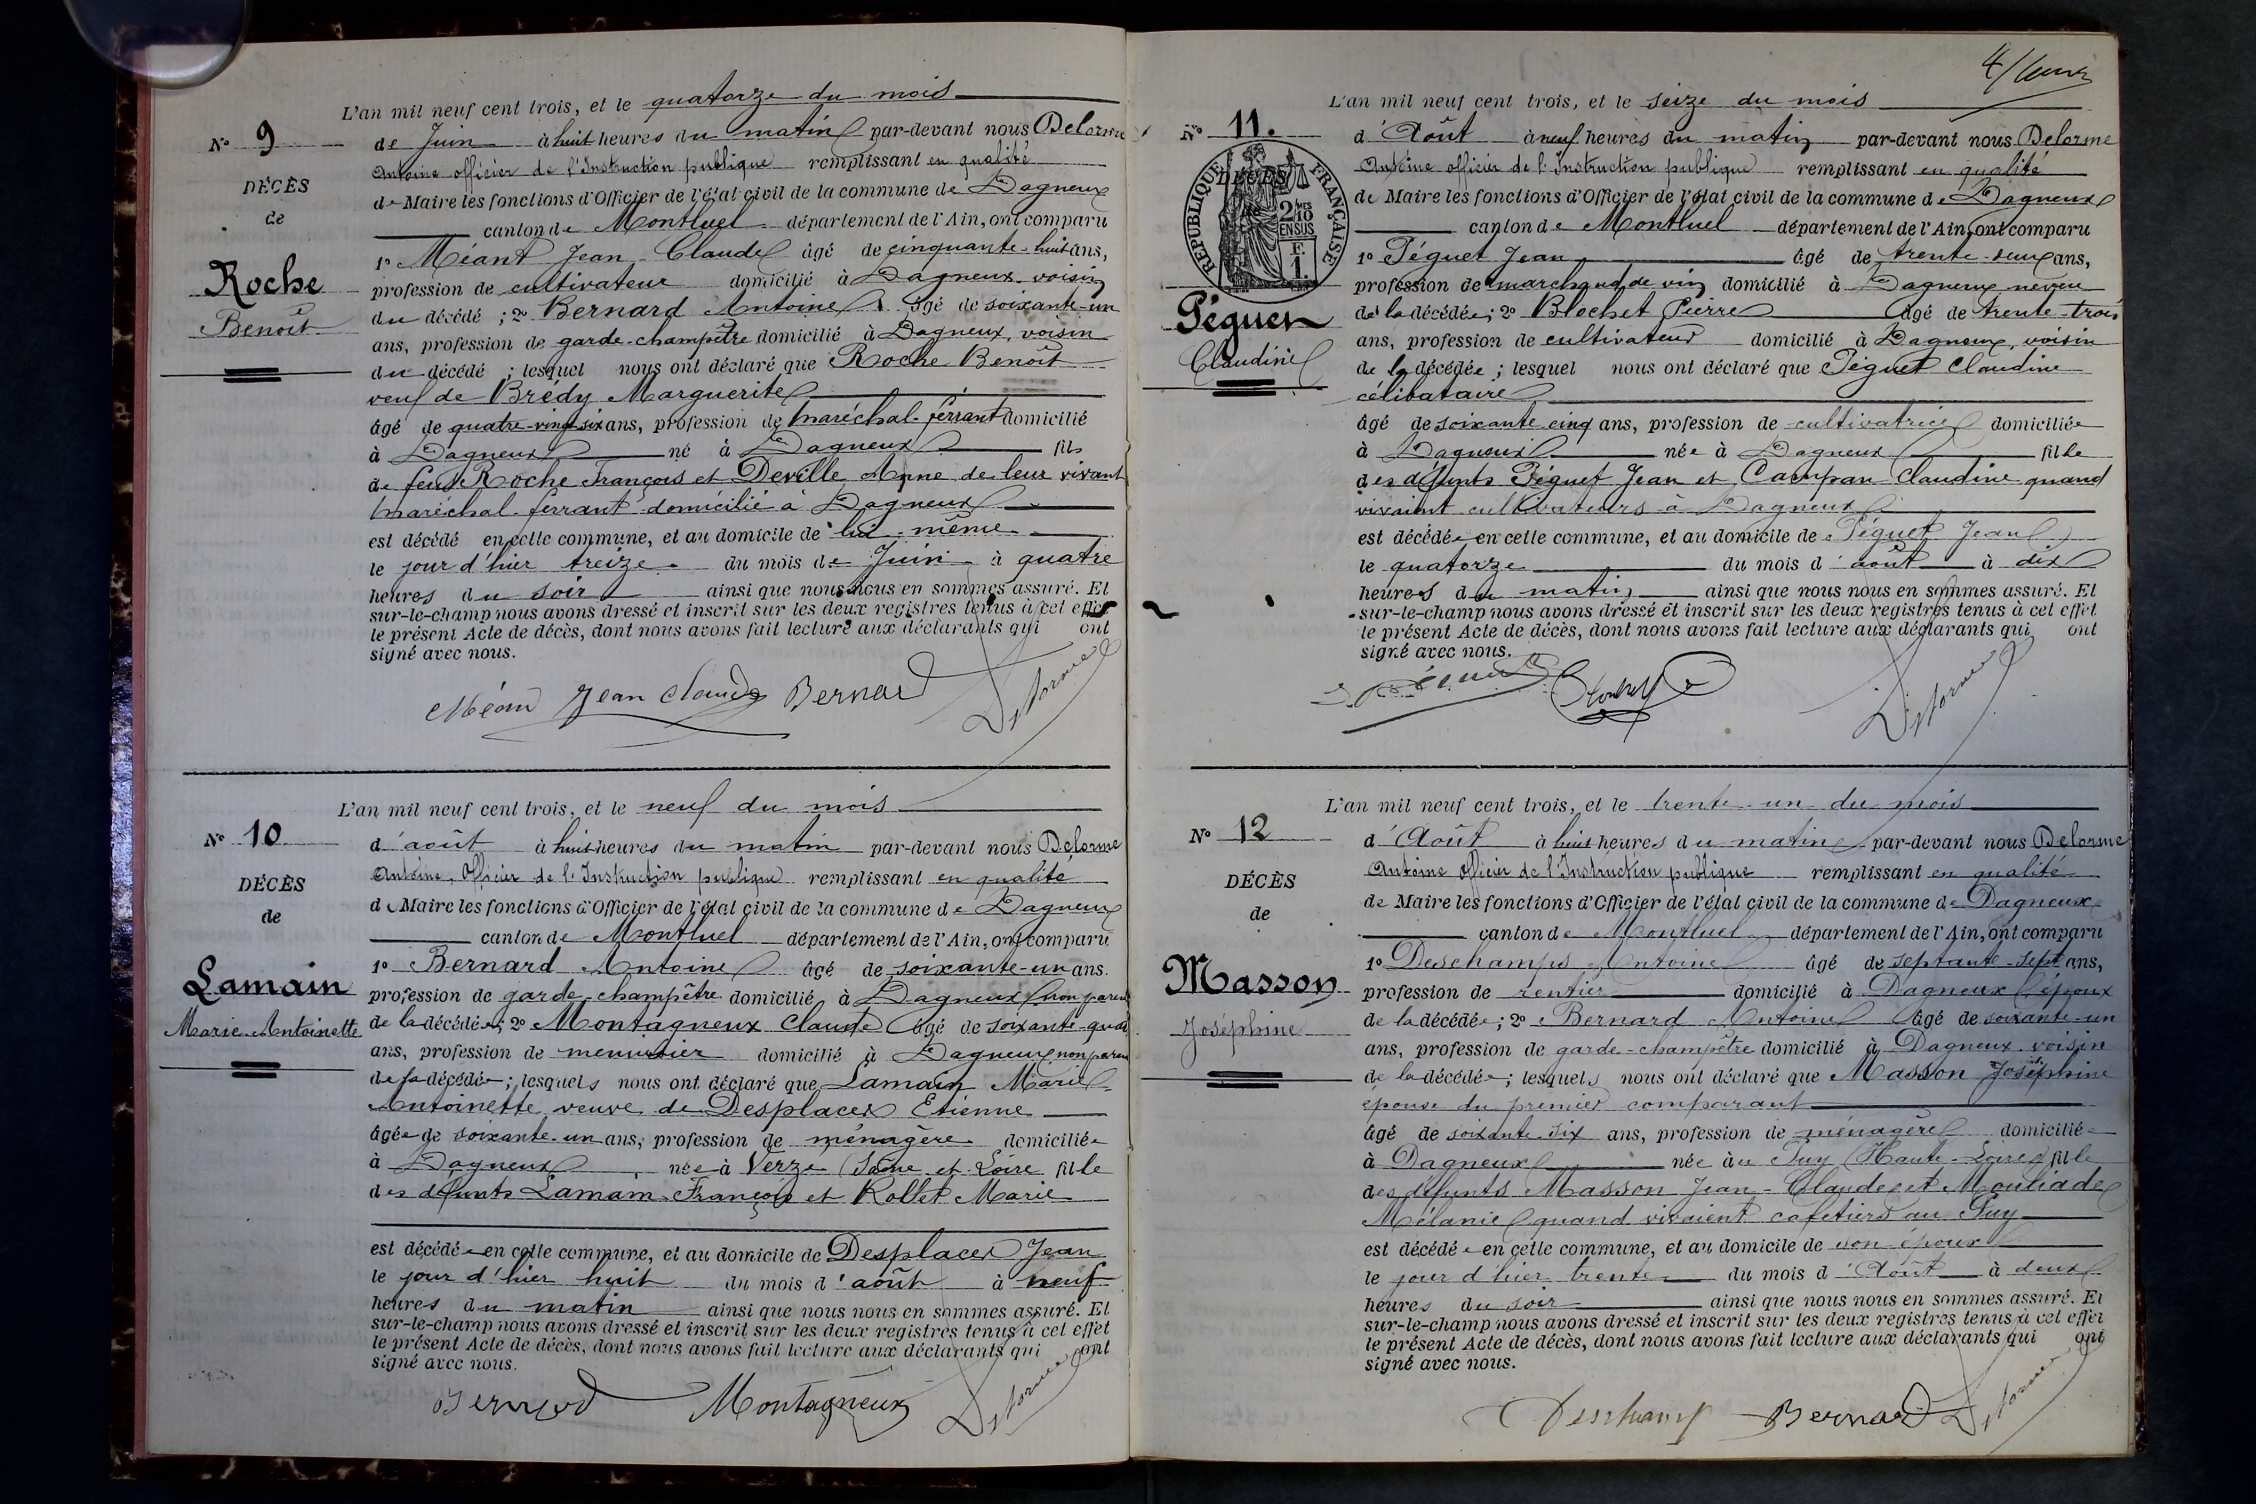 L'an mil neuf cent trois, et le quatorze du mois
No 9
de Juin à huit heures du matin par-devant nous Delorme
Antoine officier de l'Instruction publique remplissant en qualité
DÉCÈS
de Maire les fonctions d'Officier de l'état civil de la commune de Dagneux
de
canton de Montluel département de l'Ain, ont comparu
1o Méant Jean Claude âgé de cinquante-huit ans,
Roche
profession de cultivateur domicilié à Dagneux, voisin
Benoît
du décédé ; 2o Bernard Antoine âgé de soixante-un
ans, profession de garde-champêtre domicilié à Dagneux, voisin
du décédé ; lesquel nous ont déclaré que Roche Benoît
veuf de Brédy Marguerite
âgé de quatre-vingt-six ans, profession de maréchal-ferrant domicilié
à Dagneux né à Dagneux fils
de feus Roche François et Deville Anne de leur vivant
maréchal-ferrant domicilié à Dagneux
est décédé en cette commune, et au domicile de lui-même
le jour d'hier treize du mois de Juin à quatre
heures du soir ainsi que nous nous en sommes assuré. Et
sur-le-champ nous avons dressé et inscrit sur les deux registres tenus à cet effet
le présent Acte de décès, dont nous avons fait lecture aux déclarants qui ont
signé avec nous.
Méan Jean Claude Bernard Delorme
L'an mil neuf cent trois, et le neuf du mois
No 10
d'août à huit heures du matin par-devant nous Delorme
Antoine, Officier de l'Instruction publique remplissant en qualité
DÉCÈS
de Maire les fonctions d'Officier de l'état civil de la commune de Dagneux
de
canton de Montluel département de l'Ain, ont comparu
1o Bernard Antoine âgé de soixante-un ans.
Lamain
profession de garde-champêtre domicilié à Dagneux non paren
Marie Antoinette
de la décédée ; 2o Montagneux Claude âgé de soixante-qua
ans, profession de menuisier domicilié à Dagneux non paren
de la décédée ; lesquels nous ont déclaré que Lamain Marie
Antoinette, veuve de Desplaces Etienne
âgée de soixante-un ans, profession de ménagère domiciliée
à Dagneux née à Verzé (Saône-et-Loire fille
des défunts Lamain François et Rollet Marie
est décédée en cette commune, et au domicile de Desplaces Jean
le jour d'hier huit du mois d'août à neuf
heures du matin ainsi que nous nous en sommes assuré. Et
sur-le-champ nous avons dressé et inscrit sur les deux registres tenus à cet effet
le présent Acte de décès, dont nous avons fait lecture aux déclarants qui ont
signé avec nous.
Bernard Montagneux Delorme
4/
L'an mil neuf cent trois, et le seize du mois
No 11.
d'Août à neuf heures du matin par-devant nous Delorme
Antoine officier de l'Instruction publique remplissant en qualité
RÉPUBLIQUE FRANÇAISE
DÉCÈS
2/10 EN SUS
F. 1.
de Maire les fonctions d'Officier de l'état civil de la commune de Dagneux
canton de Montluel département de l'Ain, ont comparu
1o Péguet Jean âgé de trente-deux ans,
profession de marchand de vin domicilié à Dagneux neveu
Péguet
de la décédée ; 2o Blochet Pierre âgé de trente-trois
Claudine
ans, profession de cultivateur domicilié à Dagneux, voisin
de la décédée ; lesquel nous ont déclaré que Péguet Claudine
célibataire
âgé de soixante-cinq ans, profession de cultivatrice domiciliée
à Dagneux née à Dagneux fille
des défunts Péguet Jean et Campan Claudine quand
vivaient cultivateurs à Dagneux
est décédée en cette commune, et au domicile de Péguet Jean
le quatorze du mois d'août à dix
heures du matin ainsi que nous nous en sommes assuré. Et
sur-le-champ nous avons dressé et inscrit sur les deux registres tenus à cet effet
le présent Acte de décès, dont nous avons fait lecture aux déclarants qui ont
signé avec nous.
Delorme
L'an mil neuf cent trois, et le trente-un du mois
No 12
d'Août à huit heures du matin par-devant nous Delorme
Antoine officier de l'Instruction publique remplissant en qualité
DÉCÈS
de Maire les fonctions d'Officier de l'état civil de la commune de Dagneux
de
canton de Montluel département de l'Ain, ont comparu
1o Deschamps Antoine âgé de septante-sept ans,
Masson
profession de rentier domicilié à Dagneux époux
Joséphine
de la décédée ; 2o Bernard Antoine âgé de soixante-un
ans, profession de garde-champêtre domicilié à Dagneux voisin
de la décédée ; lesquels nous ont déclaré que Masson Joséphine
épouse du premier comparant
âgé de soixante-six ans, profession de ménagère domiciliée
à Dagneux née au Puy (Haute-Loire) fille
des défunts Masson Jean-Claude et Mouliade
Mélanie quand vivaient cafetiers au Puy
est décédée en cette commune, et au domicile de son époux
le jour d'hier trente du mois d'Août à deux
heures du soir ainsi que nous nous en sommes assuré. Et
sur-le-champ nous avons dressé et inscrit sur les deux registres tenus à cet effet
le présent Acte de décès, dont nous avons fait lecture aux déclarants qui ont
signé avec nous.
Deschamp Bernard Delorme